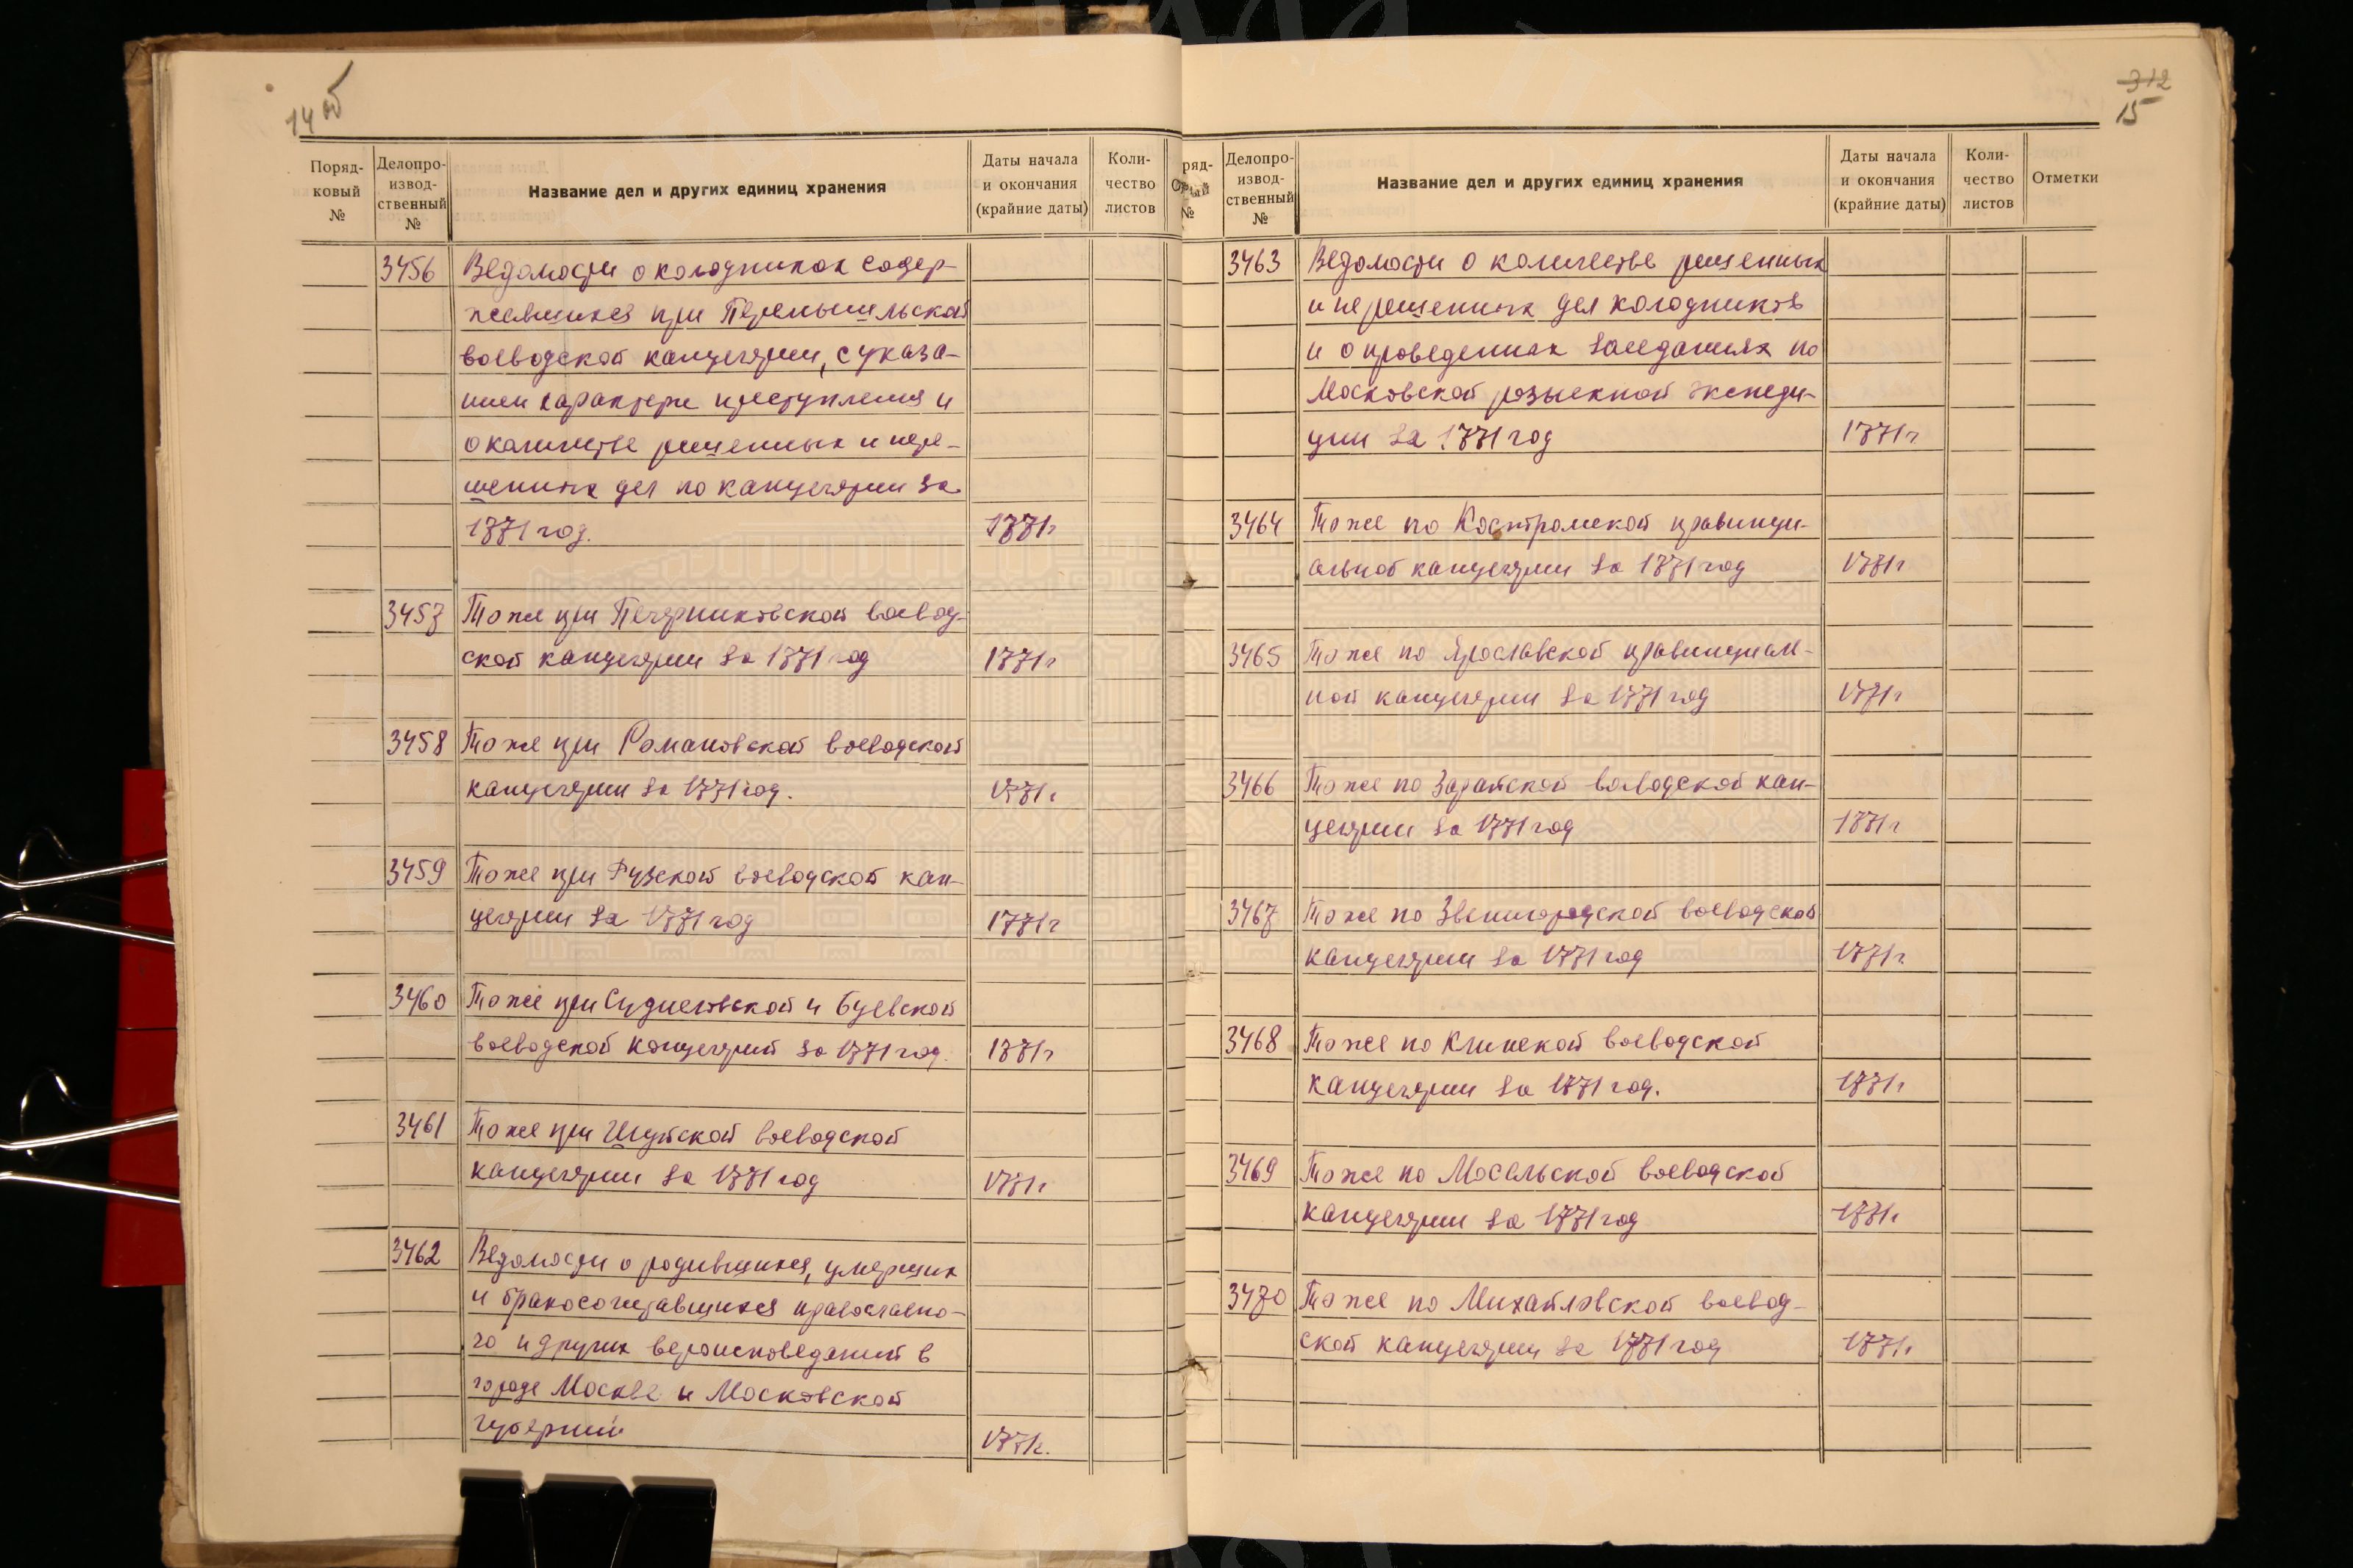 14 об
Поряд-
ковый
№
Делопро-
извод-
ственный
№
Название дел и других единиц хранения
Даты начала
и окончания
(крайние даты)
Коли-
чество
листов
3456 Ведомости о колодниках содер-
жавшихся при Перемышльской
воеводской канцелярии, с указа-
нием характера преступления и
о количестве решенных и нере-
шенных дел по канцелярии за
1771 год. 1771г
3457 То же при Печерниковской воевод-
ской канцелярии за 1771 год 1771г
3458 То же при Романовской воеводской
канцелярии за 1771 год. 1771г
3459 То же при Рузской воеводской кан-
целярии за 1771 год 1771г
3460 То же при Судиславской и Буевской
воеводской канцелярий за 1771 год. 1771г
3461 То же при Шуйской воеводской
канцелярии за 1771 год 1771г
3462 Ведомости о родившихся, умерших
и бракосочетавшихся православно-
го и других вероисповеданий в
городе Москве и Московской
губернии 1771г.
312
15
ряд-
вый
№
Делопро-
извод-
ственный
№
Название дел и других единиц хранения
Даты начала
и окончания
(крайние даты)
Коли-
чество
листов
Отметки
3463 Ведомости о количестве решенных
и нерешенных дел колодников
и о проведенных заседаниях по
Московской розыскной экспеди-
ции за 1771 год 1771г
3464 То же по Костромской правинци-
альной канцелярии за 1771 год 1771г
3465 То же по Ярославской правинциаль-
ной канцелярии за 1771 год 1771г
3466 То же по Зарайской воеводской кан-
целярии за 1771 год 1771г
3467 То же по Звенигородской воеводской
канцелярии за 1771 год 1771г
3468 То же по Клинской воеводской
канцелярии за 1771 год. 1771г
3469 То же по Мосальской воеводской
канцелярии за 1771 год 1771г
3470 То же по Михайловской воевод-
ской канцелярии за 1771 год 1771г